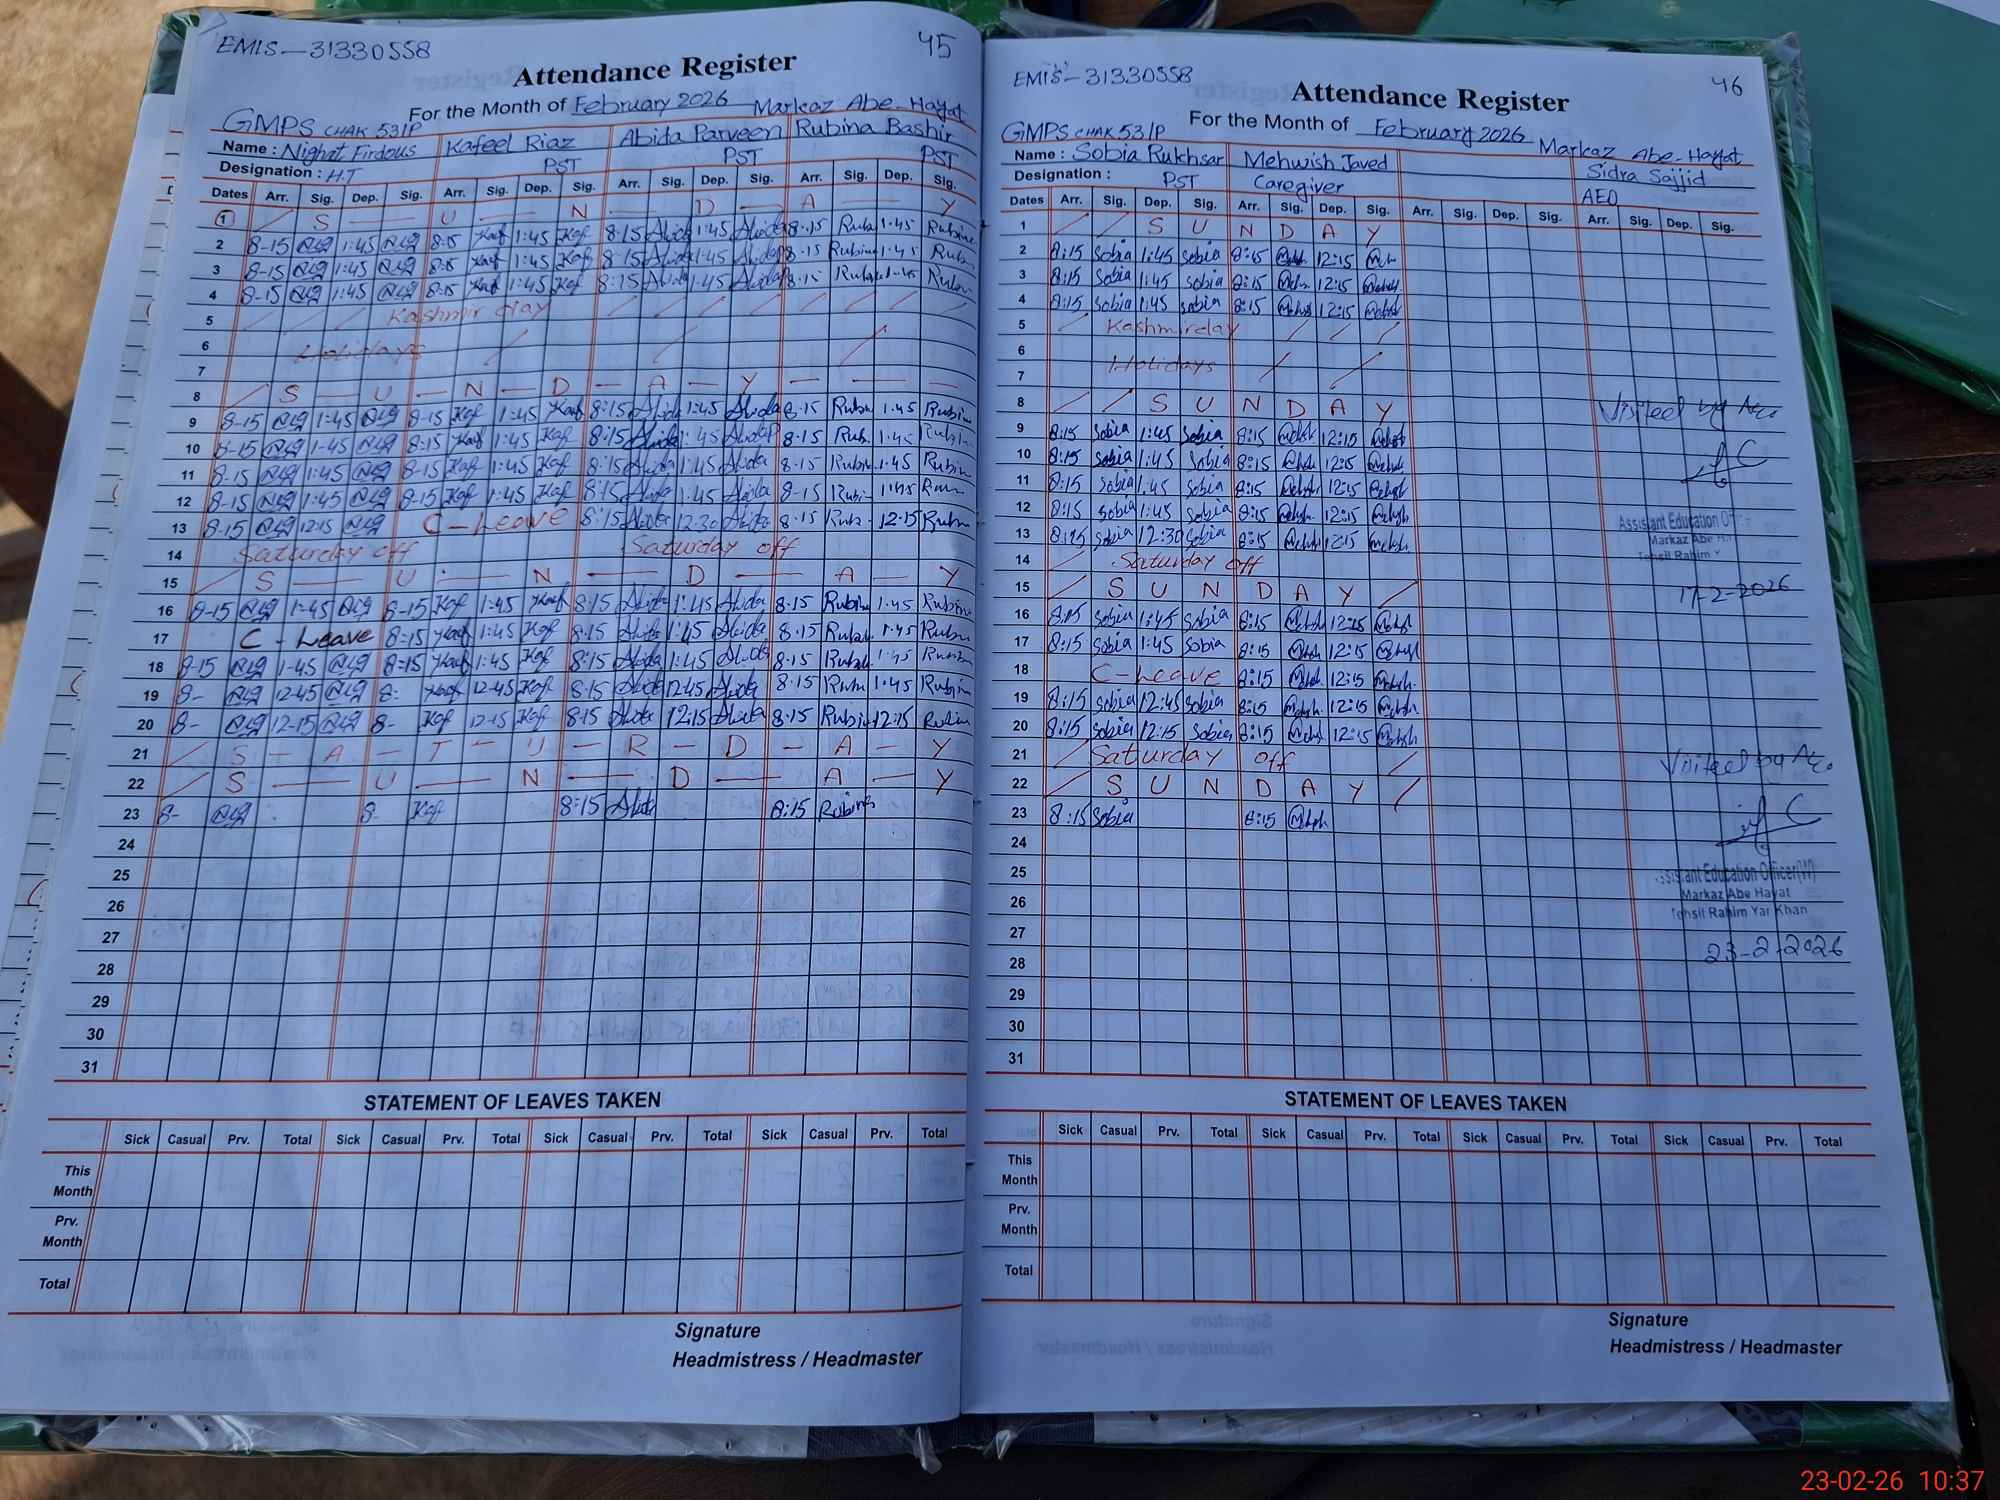 EMIS-31330558 45
Attendance Register
For the Month of February 2026 Markaz Abe-Hayat
GMPS CHAK 53/P
Name : Nighat Firdous Kafeel Riaz Abida Parveen Rubina Bashir
Designation : H.T PST PST PST
Dates Arr. Sig. Dep. Sig. Arr. Sig. Dep. Sig. Arr. Sig. Dep. Sig. Arr. Sig. Dep. Sig.
1 S U N D A Y
2 8-15 1:45 8:15 Kaf 1:45 Kaf 8:15 Abida 1:45 Abida 8-15 Rub 1.45 Rubin
3 8-15 1:45 8:15 Kaf 1:45 Kaf 8:15 Abida 1:45 Abida 8-15 Rubin 1.45 Rubin
4 8-15 1:45 8:15 Kaf 1:45 Kaf 8:15 Abida 1:45 Abida 8-15 Rubin 1.45 Rubin
5 Kashmir day
6 Holidays
7
8 S U N D A Y
9 8-15 1:45 8-15 Kaf 1:45 Kaf 8:15 Abida 1:45 Abida 8.15 Rubin 1.45 Rubin
10 8-15 1-45 8:15 Kaf 1:45 Kaf 8:15 Abida 1:45 Abida 8.15 Rub. 1.45 Rubin
11 8-15 1:45 8-15 Kaf 1:45 Kaf 8:15 Abida 1:45 Abida 8.15 Rubin 1.45 Rubin
12 8-15 1:45 8-15 Kaf 1:45 Kaf 8:15 Abida 1:45 Abida 8-15 Rubi 1.45 Rubin
13 8-15 12:15 C-Leave 8:15 Abida 12:30 Abida 8.15 Rub. 12.15 Rubin
14 Saturday off Saturday off
15 S U N D A Y
16 8-15 1:45 8-15 Kaf 1:45 Kaf 8:15 Abida 1:45 Abida 8.15 Rubin 1.45 Rubin
17 C - Leave 8:15 Kaf 1:45 Kaf 8:15 Abida 1:45 Abida 8.15 Rubin 1.45 Rubin
18 8-15 1-45 8:15 Kaf 1:45 Kaf 8:15 Abida 1:45 Abida 8.15 Rubin 1.45 Rubin
19 8- 12-45 8: Kaf 12-45 Kaf 8:15 Abida 12:45 Abida 8.15 Rubin 1.45 Rubin
20 8- 12-15 8- Kaf 12-15 Kaf 8:15 Abida 12:15 Abida 8.15 Rubin 12:15 Rubin
21 S - A - T - U - R - D - A - Y
22 S U N D A Y
23 8- 8- Kaf 8:15 Abida 8:15 Rubina
24
25
26
27
28
29
30
31
STATEMENT OF LEAVES TAKEN
Sick Casual Prv. Total Sick Casual Prv. Total Sick Casual Prv. Total Sick Casual Prv. Total
This Month
Prv. Month
Total
Signature
Headmistress / Headmaster
EMIS-31330558 46
Attendance Register
For the Month of February 2026 Markaz Abe-Hayat
GMPS CHAK 53/P
Name : Sobia Rukhsar Mehwish Javed Sidra Sajjid
Designation : PST Caregiver AEO
Dates Arr. Sig. Dep. Sig. Arr. Sig. Dep. Sig. Arr. Sig. Dep. Sig. Arr. Sig. Dep. Sig.
1 S U N D A Y
2 8:15 Sobia 1:45 Sobia 8:15 12:15
3 8:15 Sobia 1:45 Sobia 8:15 12:15
4 8:15 Sobia 1:45 Sobia 8:15 12:15
5 Kashmirday
6 Holidays
7
8 S U N D A Y
9 8:15 Sobia 1:45 Sobia 8:15 12:15
10 8:15 Sobia 1:45 Sobia 8:15 12:15
11 8:15 Sobia 1:45 Sobia 8:15 12:15
12 8:15 Sobia 1:45 Sobia 8:15 12:15
13 8:15 Sobia 12:30 Sobia 8:15 12:15
14 Saturday off
15 S U N D A Y
16 8:15 Sobia 1:45 Sobia 8:15 12:15
17 8:15 Sobia 1:45 Sobia 8:15 12:15
18 C-Leave 8:15 12:15
19 8:15 Sobia 12:45 Sobia 8:15 12:15
20 8:15 Sobia 12:15 Sobia 8:15 12:15
21 Saturday off
22 S U N D A Y
23 8:15 Sobia 8:15
24
25
26
27
28
29
30
31
Visited by
Assistant Education
Markaz Abe
Tehsil Rahim Y
17-2-2026
Visited by
Assistant Education Officer(W)
Markaz Abe Hayat
Tehsil Rahim Yar Khan
23-2-2026
STATEMENT OF LEAVES TAKEN
Sick Casual Prv. Total Sick Casual Prv. Total Sick Casual Prv. Total Sick Casual Prv. Total
This Month
Prv. Month
Total
Signature
Headmistress / Headmaster
23-02-26 10:37